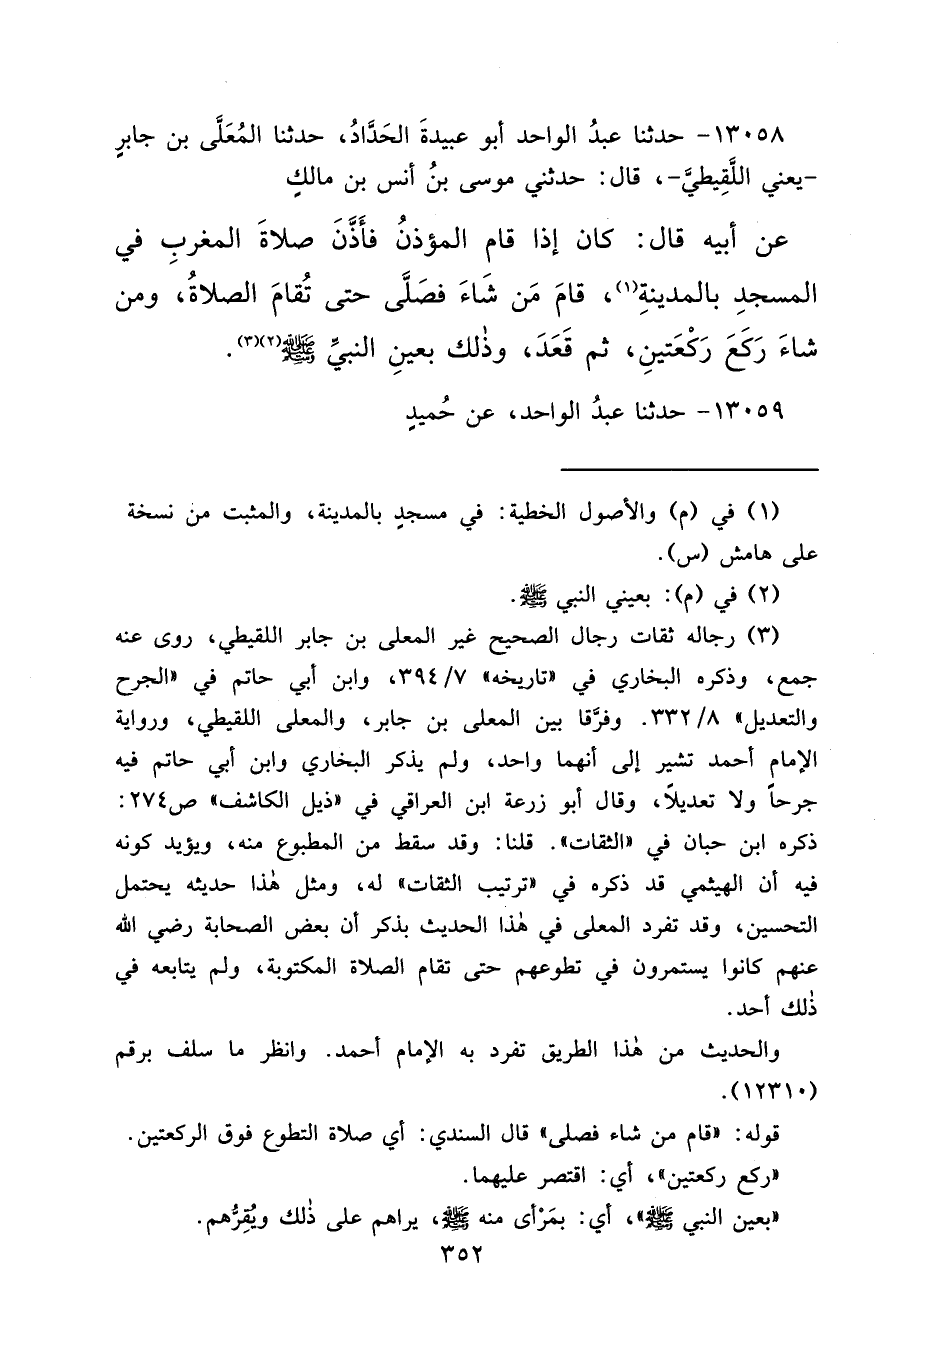 ١٣٠٥٨- حدثنا عبدُ الواحد أبو عبيدةَ الحَدَّادُ، حدثنا المُعَلَّى بن جابرٍ
-يعني اللَّقِيطيَّ-، قال: حدثني موسى بنُ أنس بن مالكٍ
عن أبيه قال: كان إذا قام المؤذنُ فأَذَّنَ صلاةَ المغربِ في
المسجدِ بالمدينةِ(١)، قامَ مَن شَاءَ فصَلَّى حتى تُقامَ الصلاةُ، ومن
شاءَ رَكَعَ رَكْعَتينِ، ثم قَعَدَ، وذٰلك بعينِ النبيِّ ﷺ(٢)(٣).
١٣٠٥٩- حدثنا عبدُ الواحد، عن حُميدٍ
(١) في (م) والأصول الخطية: في مسجدٍ بالمدينة، والمثبت من نسخة
على هامش (س).
(٢) في (م): بعيني النبي ﷺ.
(٣) رجاله ثقات رجال الصحيح غير المعلى بن جابر اللقيطي، روى عنه
جمع، وذكره البخاري في «تاريخه» ٣٩٤/٧، وابن أبي حاتم في «الجرح
والتعديل» ٣٣٢/٨. وفرَّقا بين المعلى بن جابر، والمعلى اللقيطي، ورواية
الإمام أحمد تشير إلى أنهما واحد، ولم يذكر البخاري وابن أبي حاتم فيه
جرحاً ولا تعديلاً، وقال أبو زرعة ابن العراقي في «ذيل الكاشف» ص٢٧٤:
ذكره ابن حبان في «الثقات». قلنا: وقد سقط من المطبوع منه، ويؤيد كونه
فيه أن الهيثمي قد ذكره في «ترتيب الثقات» له، ومثل هٰذا حديثه يحتمل
التحسين، وقد تفرد المعلى في هٰذا الحديث بذكر أن بعض الصحابة رضي الله
عنهم كانوا يستمرون في تطوعهم حتى تقام الصلاة المكتوبة، ولم يتابعه في
ذٰلك أحد.
والحديث من هٰذا الطريق تفرد به الإمام أحمد. وانظر ما سلف برقم
(١٢٣١٠).
قوله: «قام من شاء فصلى» قال السندي: أي صلاة التطوع فوق الركعتين.
«ركع ركعتين»، أي: اقتصر عليهما.
«بعين النبي ﷺ»، أي: بمَرْأى منه ﷺ، يراهم على ذٰلك ويُقِرُّهم.
٣٥٢